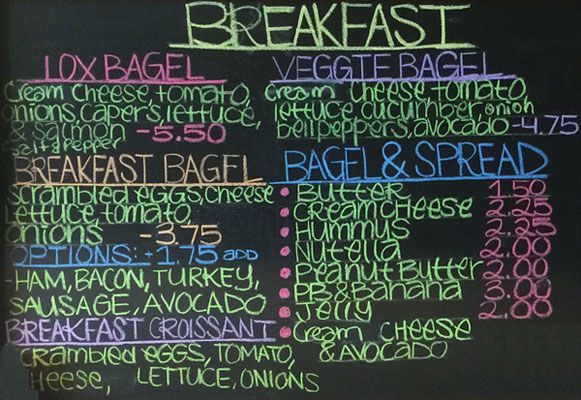 BREAKFAST
LOX BAGEL
Cream Cheese, tomato,
onions, capers, lettuce,
& salmon -5.50
Salt & pepper
BREAKFAST BAGEL
Scrambled eggs, cheese
Lettuce, tomato,
onions -3.75
OPTIONS: +1.75 ADD
-HAM, BACON, TURKEY,
SAUSAGE, AVOCADO
BREAKFAST CROISSANT
crambled eggs, TOMATO,
Heese, LETTUCE, ONIONS
VEGGIE BAGEL
cream cheese, tomato,
lettuce, cucumber, onion
bell peppers, avocado -4.75
BAGEL & SPREAD
• Butter 1.50
• Cream Cheese 2.25
• Hummus 2.25
• Nutella 2.00
• Peanut Butter 2.00
• PB & Banana 3.00
• Jelly 2.00
• Cream Cheese
& AVOCADO